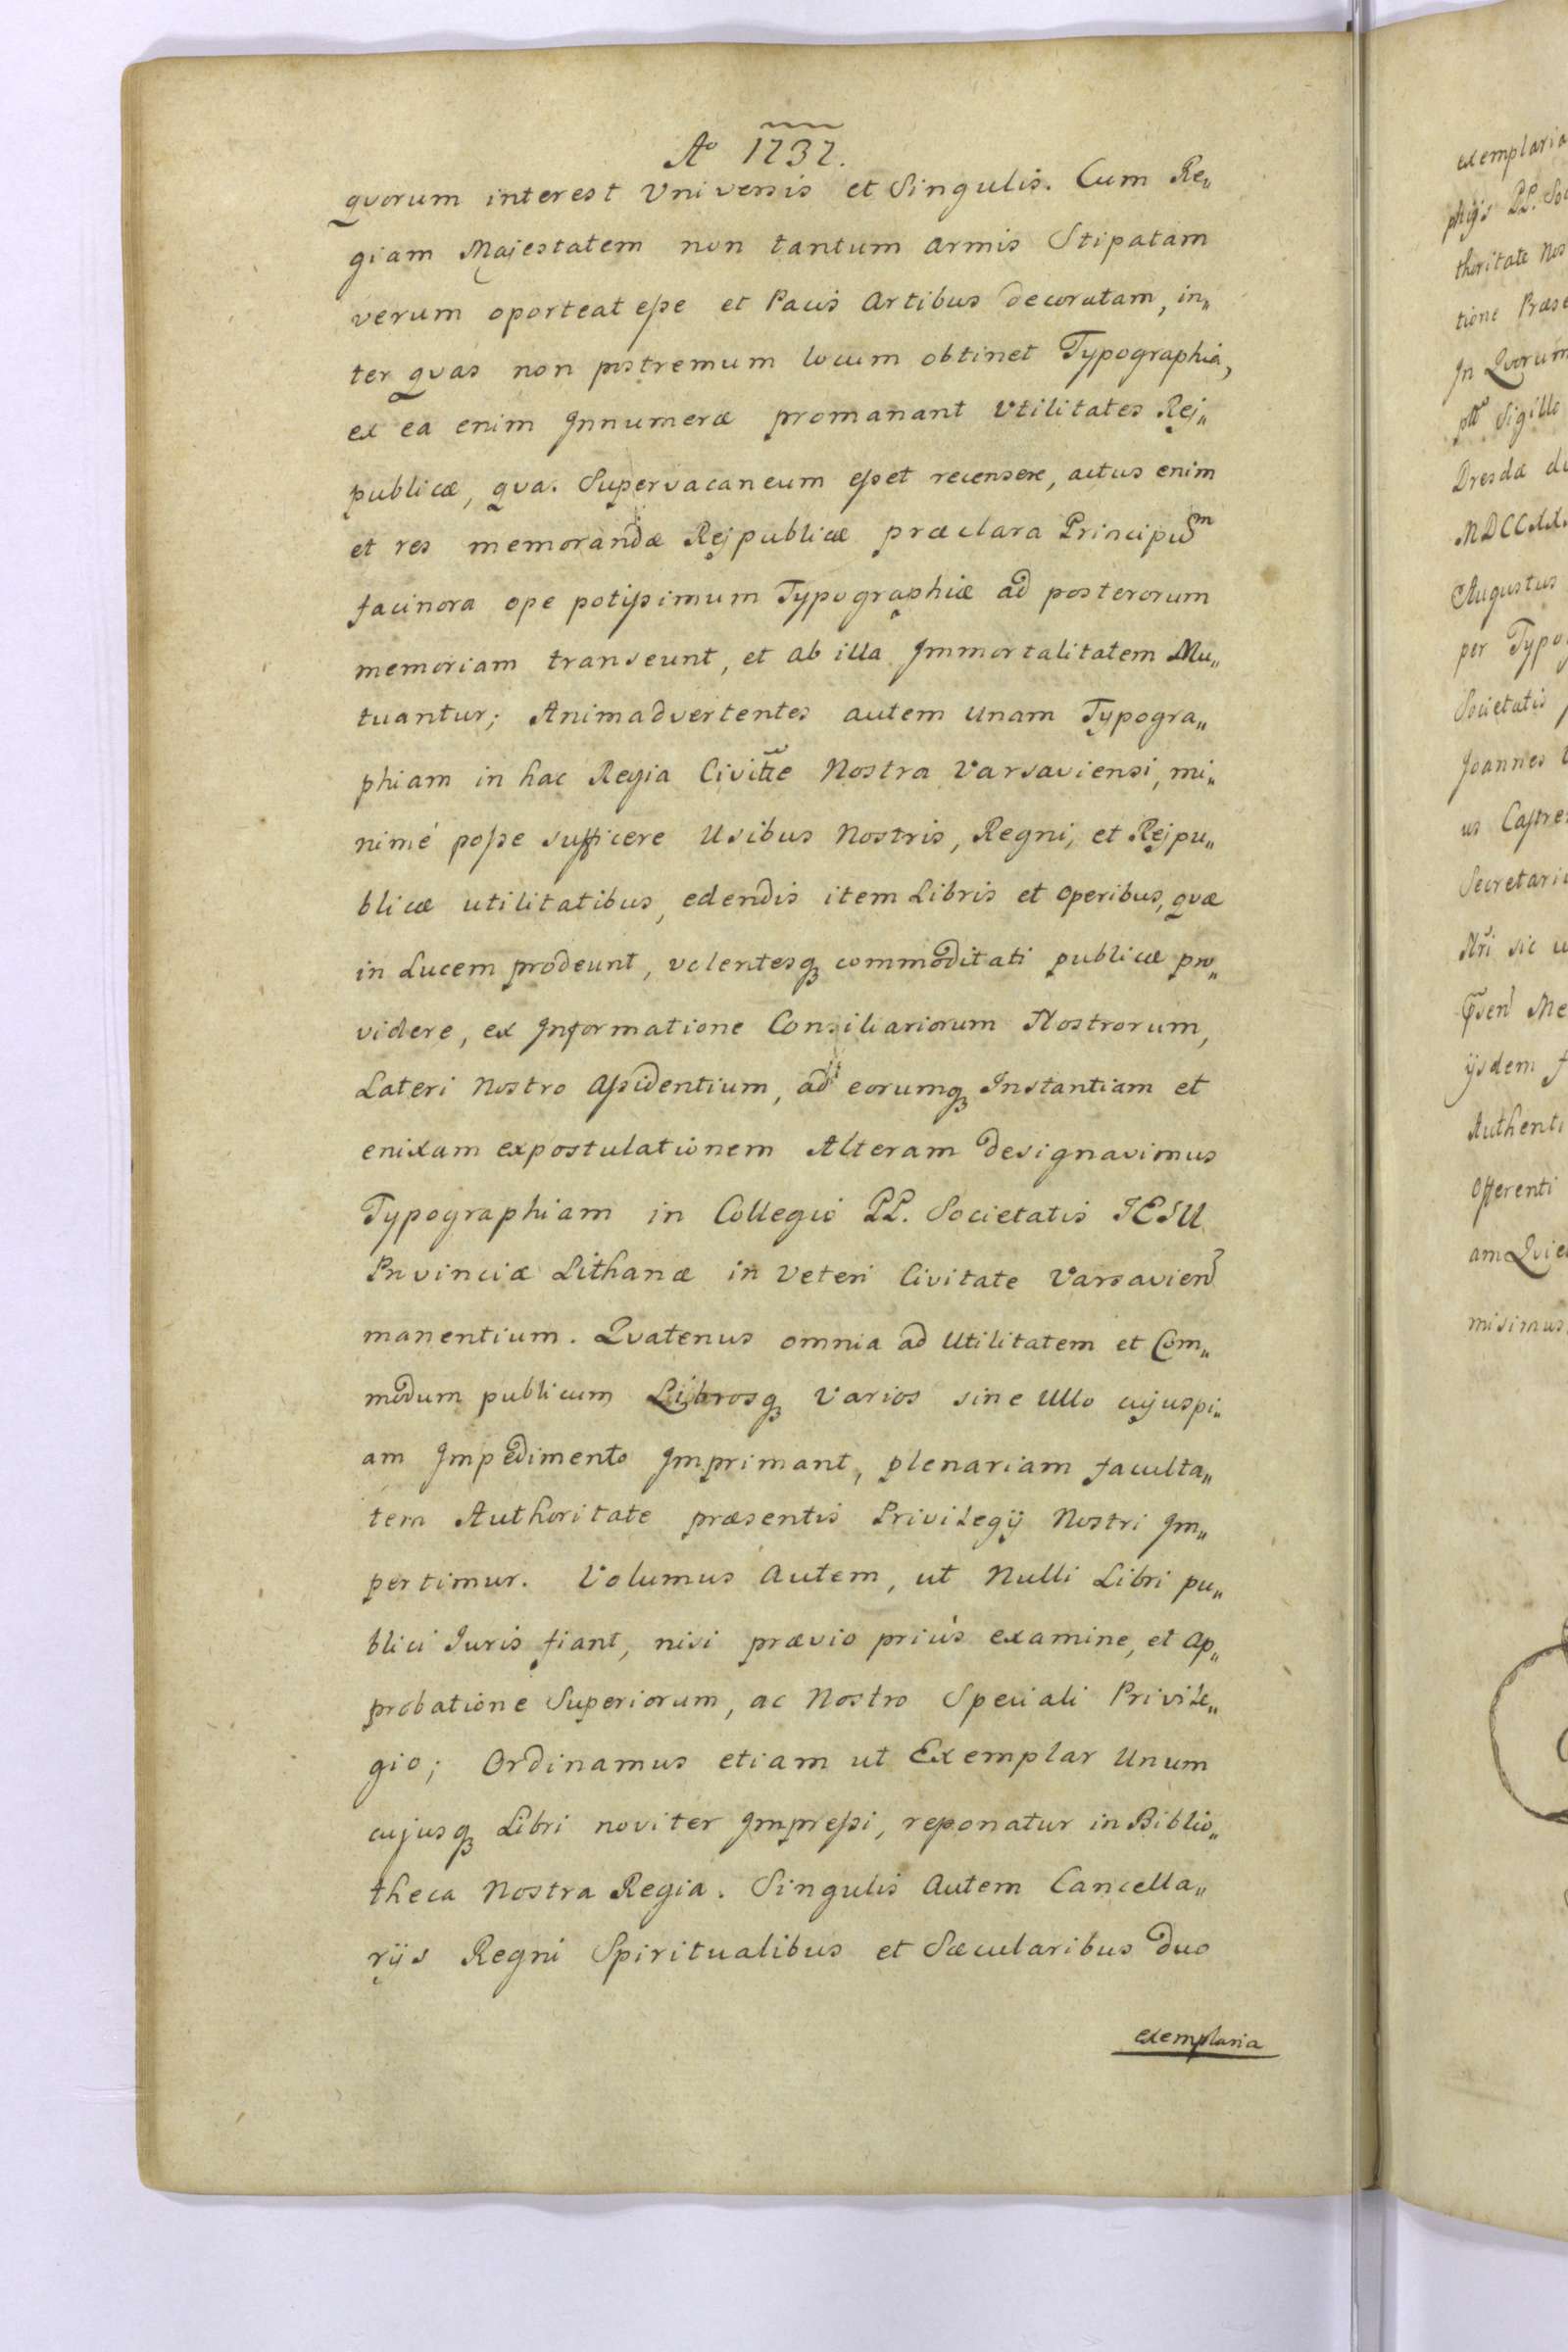 Aº 1737.
quorum interest Universis et Singulis. Cum Re„
giam Majestatem non tantum armis Stipatam
verum oporteat eſse et Pacis Artibus decoratam, in„
ter quas non postremum locum obtinet Typographia,
ex ea enim Innumeræ promanant Utilitates Rej„
publicæ, qva. Supervacaneum eſset recensere, actus enim
et res memorandæ Rejpublicæ præclara Principum
facinora ope potiſsimum Typographiæ ad posterorum
memoriam transeunt, et ab illa Immortalitatem Mu„
tuantur; Animadvertentes autem unam Typogra„
phiam in hac Regia Civitte Nostra Varsaviensi, mi„
nimé poſse sufficere Usibus Nostris, Regni, et Rejpu„
blicæ utilitatibus, edendis item Libris et operibus, qvæ
in Lucem prodeunt, volentesq commoditati publicæ pro„
videre, ex Informatione Consiliariorum Nostrorum,
Lateri Nostro Aſsidentium, ad eorumq Instantiam et
enixam expostulationem Alteram designavimus
Typographiam in Collegio PP. Societatis JESU
Provinciæ Lithanæ in Veteri Civitate Varsavien
manentium. Qvatenus omnia ad Utilitatem et Com„
modum publicum Librosq varios sine Ullo cujuspi„
am Impedimento Imprimant, plenariam faculta„
tem Authoritate præsentis Privilegij Nostri Im„
pertimur. Volumus Autem, ut Nulli Libri pu„
blici Juris fiant, nisi prævio priús examine, et Ap„
probatione Superiorum, ac Nostro Speciali Privile„
gio; Ordinamus etiam ut Exemplar Unum
cujusq Libri noviter Impreſsi, reponatur in Biblio„
theca Nostra Regia. Singulis Autem Cancella„
rijs Regni Spiritualibus et Sæcularibus duo
exemplaria
exemplaria
phijs PP. Soc
thoritate Nos
tione Præse
In Qvorum
Sigillo
Dresdæ di
Augustus
per Typo
Societatis
Joannes
us Castre
Secretari
Nri sic
Me
ijsdem
Authenti
Offerenti
am Qvie
misimus